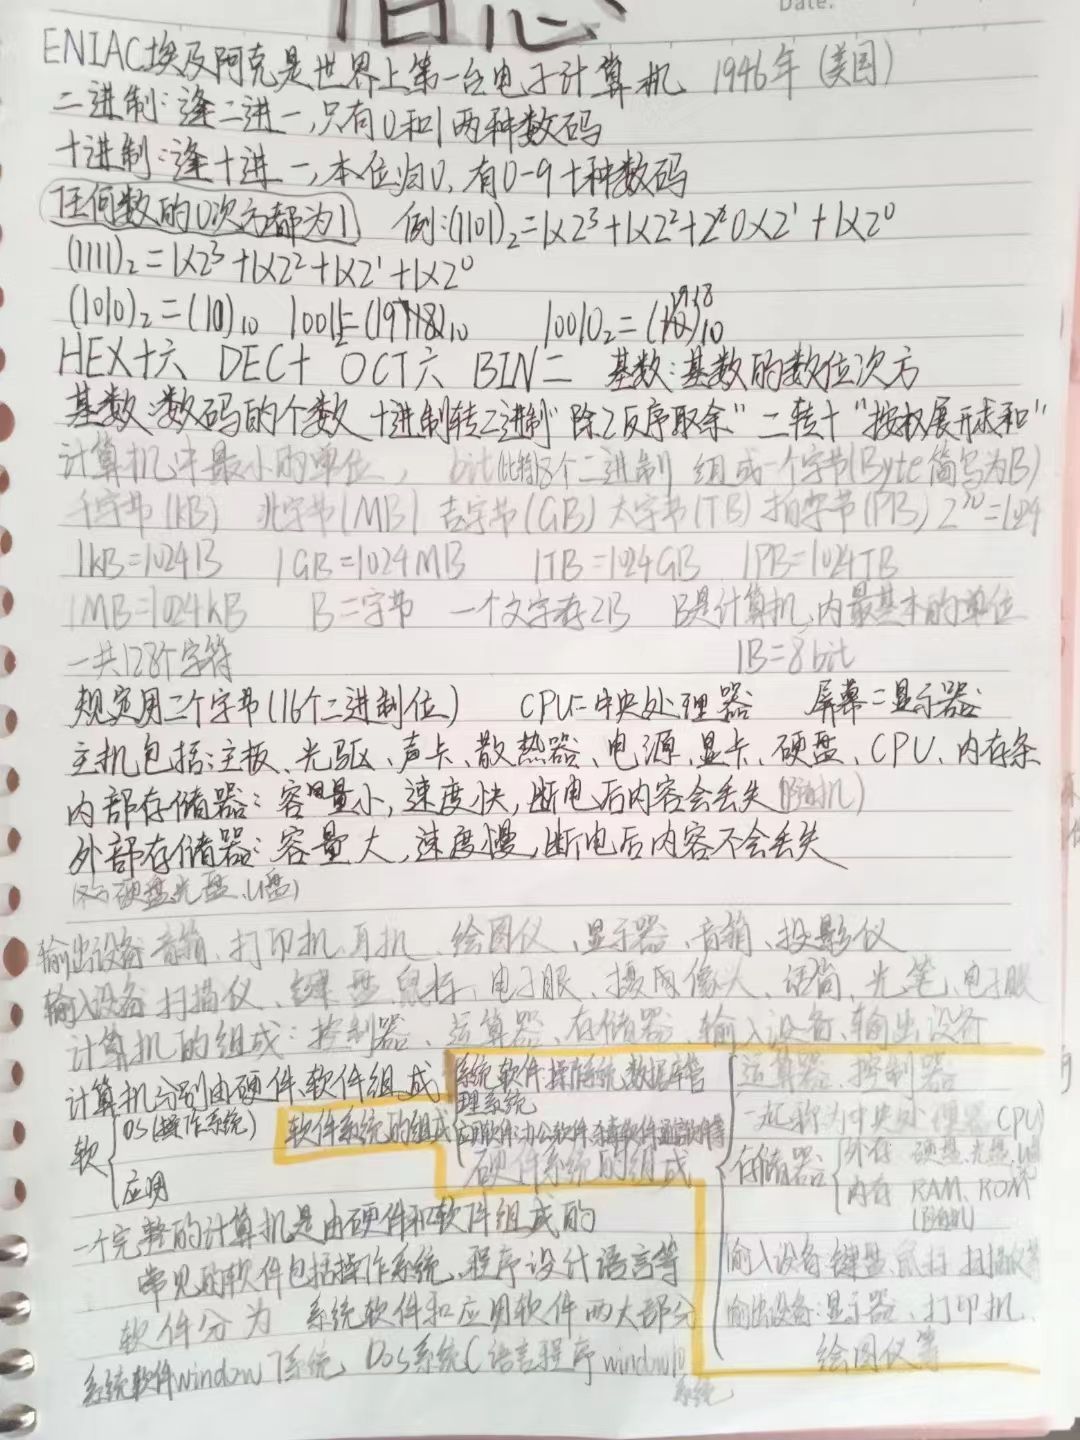 信息
Date:
ENIAC埃及阿克是世界上第一台电子计算机 1946年(美国)
二进制:逢二进一,只有0和1两种数码
十进制:逢十进一,本位归0,有0-9十种数码
任何数的0次方都为1 例:(1101)₂=1×2³+1×2²+0×2¹+1×2⁰
(1111)₂=1×2³+1×2²+1×2¹+1×2⁰
(1010)₂=(10)₁₀
HEX十六 DEC十 OCT六 BIN二 基数:基数的数位次方
基数:数码的个数 十进制转二进制"除2反序取余" 二转十"按权展开求和"
计算机中最小的单位, bit(比特)8个二进制 组成一个字节(Byte简写为B)
千字节(KB) 兆字节(MB) 吉字节(GB) 太字节(TB) 拍字节(PB) 2¹⁰=1024
1KB=1024B 1GB=1024MB 1TB=1024GB 1PB=1024TB
1MB=1024KB B=字节 一个文字存2B B是计算机内最基本的单位
一共128个字符 1B=8bit
规定用二个字节(16个二进制位) CPU=中央处理器 屏幕=显示器
主机包括:主板、光驱、声卡、散热器、电源、显卡、硬盘、CPU、内存条
内部存储器:容量小,速度快,断电后内容会丢失(随机)
外部存储器:容量大,速度慢,断电后内容不会丢失
硬盘、光盘、U盘)
输出设备 音箱、打印机、耳机、绘图仪、显示器、音箱、投影仪
输入设备 扫描仪、键盘、鼠标、电子眼、摄像头、话筒、光笔、电子眼
计算机的组成:控制器、运算器、存储器、输入设备、输出设备
计算机分别由硬件、软件组成
软{OS(操作系统)
应用
软件系统的组成{系统软件:操作系统、数据库管理系统
应用软件:办公软件、杀毒软件、通讯软件等
硬件系统的组成{运算器、控制器
一起称为中央处理器(CPU)
存储器{外存 硬盘、光盘、U盘
内存 RAM、ROM
(随机)
输入设备:键盘、鼠标、扫描仪等
输出设备:显示器、打印机、
绘图仪等
一个完整的计算机是由硬件和软件组成的
常见的软件包括操作系统、程序设计语言等
软件分为 系统软件和应用软件两大部分
系统软件window 7系统、Dos系统C语言程序window10
系统